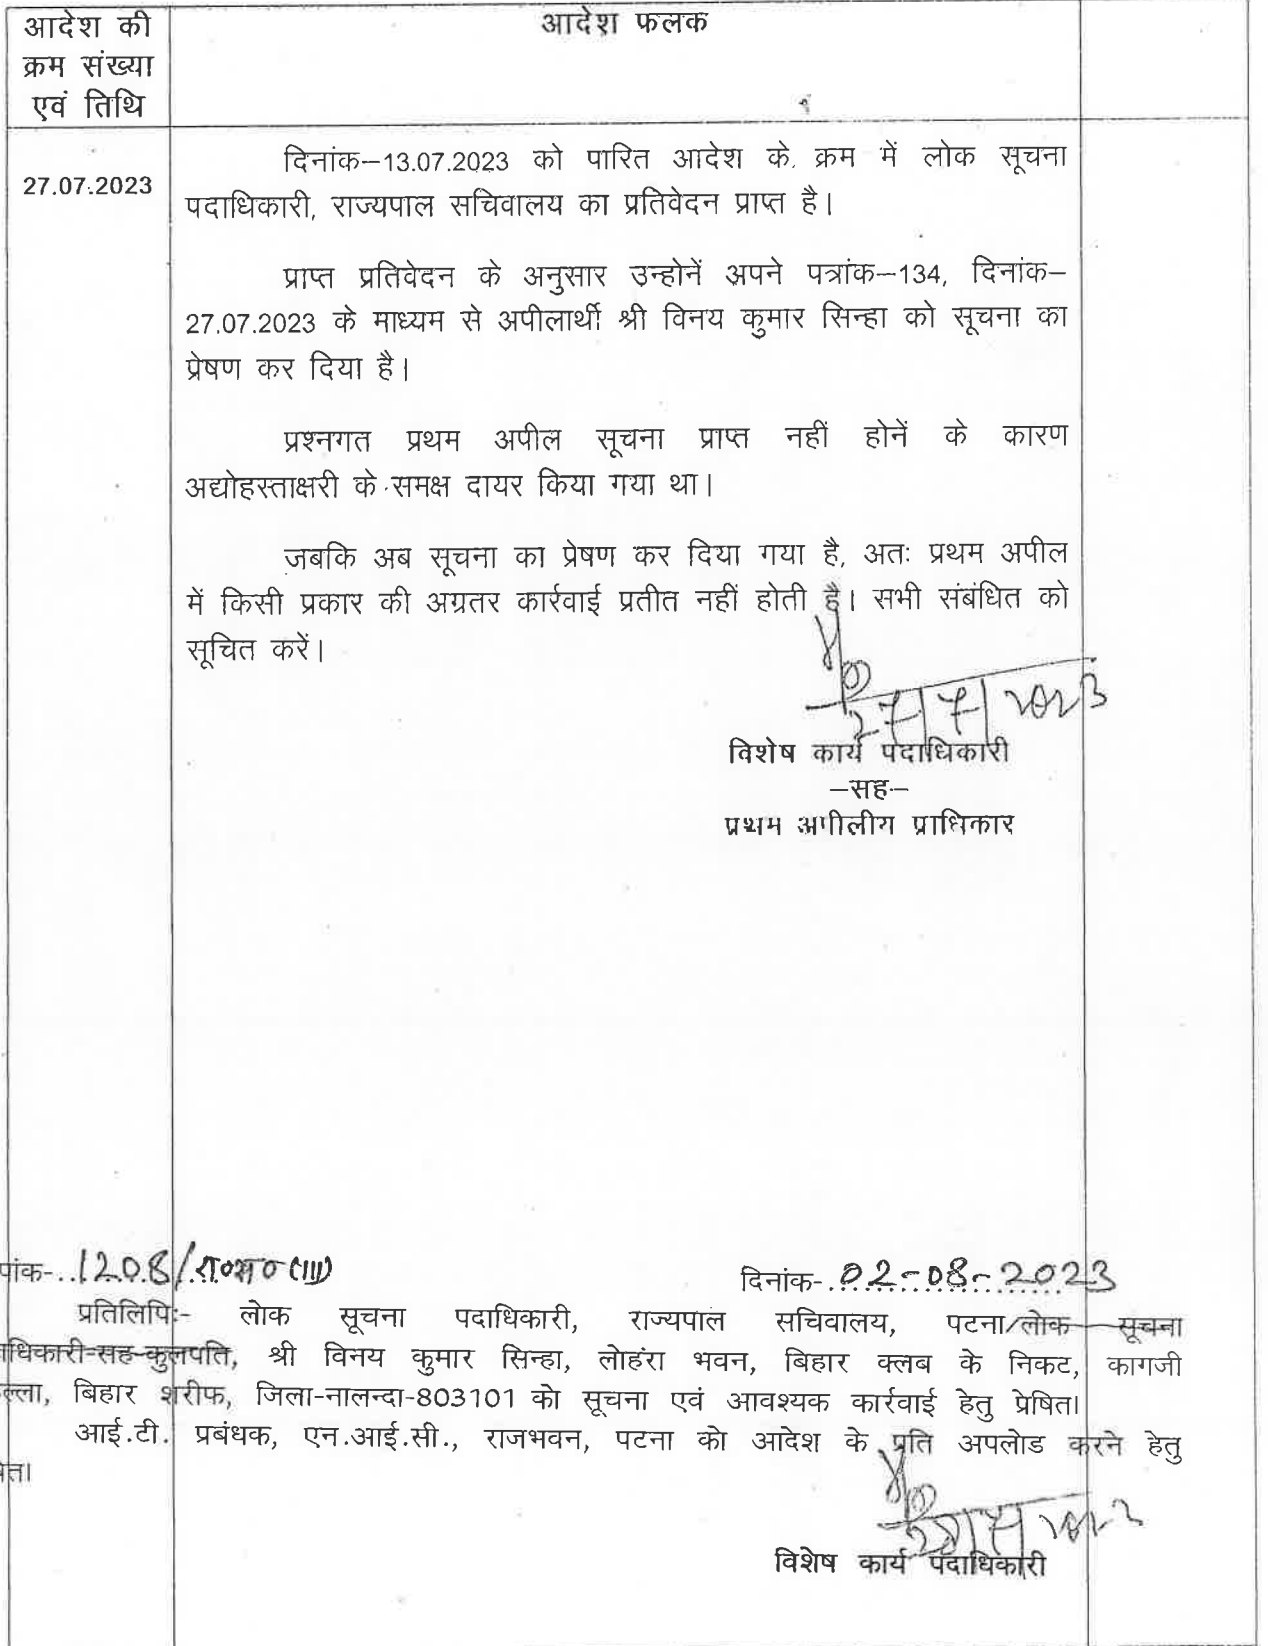 आदेश की
क्रम संख्या
एवं तिथि
आदेश फलक
27.07.2023
दिनांक–13.07.2023 को पारित आदेश के क्रम में लोक सूचना
पदाधिकारी, राज्यपाल सचिवालय का प्रतिवेदन प्राप्त है।
प्राप्त प्रतिवेदन के अनुसार उन्होनें अपने पत्रांक–134, दिनांक–
27.07.2023 के माध्यम से अपीलार्थी श्री विनय कुमार सिन्हा को सूचना का
प्रेषण कर दिया है।
प्रश्नगत प्रथम अपील सूचना प्राप्त नहीं होनें के कारण
अद्योहस्ताक्षरी के समक्ष दायर किया गया था।
जबकि अब सूचना का प्रेषण कर दिया गया है, अतः प्रथम अपील
में किसी प्रकार की अग्रतर कार्रवाई प्रतीत नहीं होती है। सभी संबंधित को
सूचित करें।
विशेष कार्य पदाधिकारी
–सह–
प्रथम अपीलीय प्राधिकार
पांक-..1208/रा०स० (III) दिनांक-.02-08-2023
प्रतिलिपिः- लोक सूचना पदाधिकारी, राज्यपाल सचिवालय, पटना/लोक सूचना
ाधिकारी-सह-कुलपति, श्री विनय कुमार सिन्हा, लोहंरा भवन, बिहार क्लब के निकट, कागजी
ल्ला, बिहार शरीफ, जिला-नालन्दा-803101 को सूचना एवं आवश्यक कार्रवाई हेतु प्रेषित।
आई.टी. प्रबंधक, एन.आई.सी., राजभवन, पटना को आदेश के प्रति अपलोड करने हेतु
षित।
विशेष कार्य पदाधिकारी